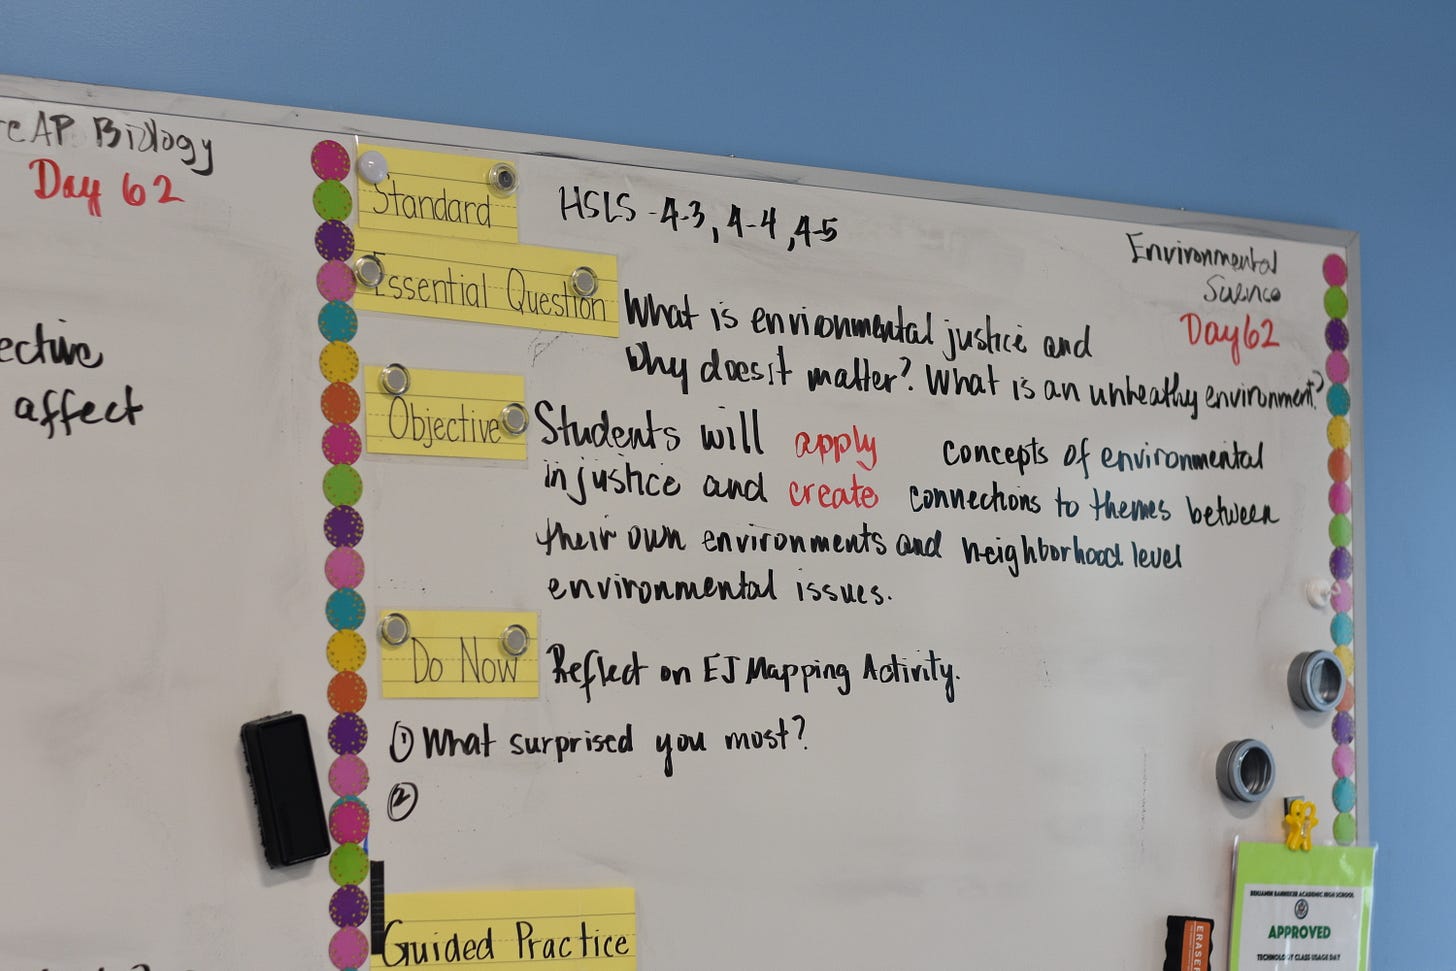 AP Biology
Day 62
affect
Standard
HSLS - 4-3, 4-4, 4-5
Environmental
Science
Day 62
Essential Question
What is environmental justice and
why does it matter? What is an unheathy environment?
Objective
Students will apply concepts of environmental
injustice and create connections to themes between
their own environments and neighborhood level
environmental issues.
Do Now
Reflect on EJ Mapping Activity.
① What surprised you most?
②
Guided Practice
ERASER
BENJAMIN BANNEKER ACADEMIC HIGH SCHOOL
APPROVED
TECHNOLOGY CLASS USAGE DAY